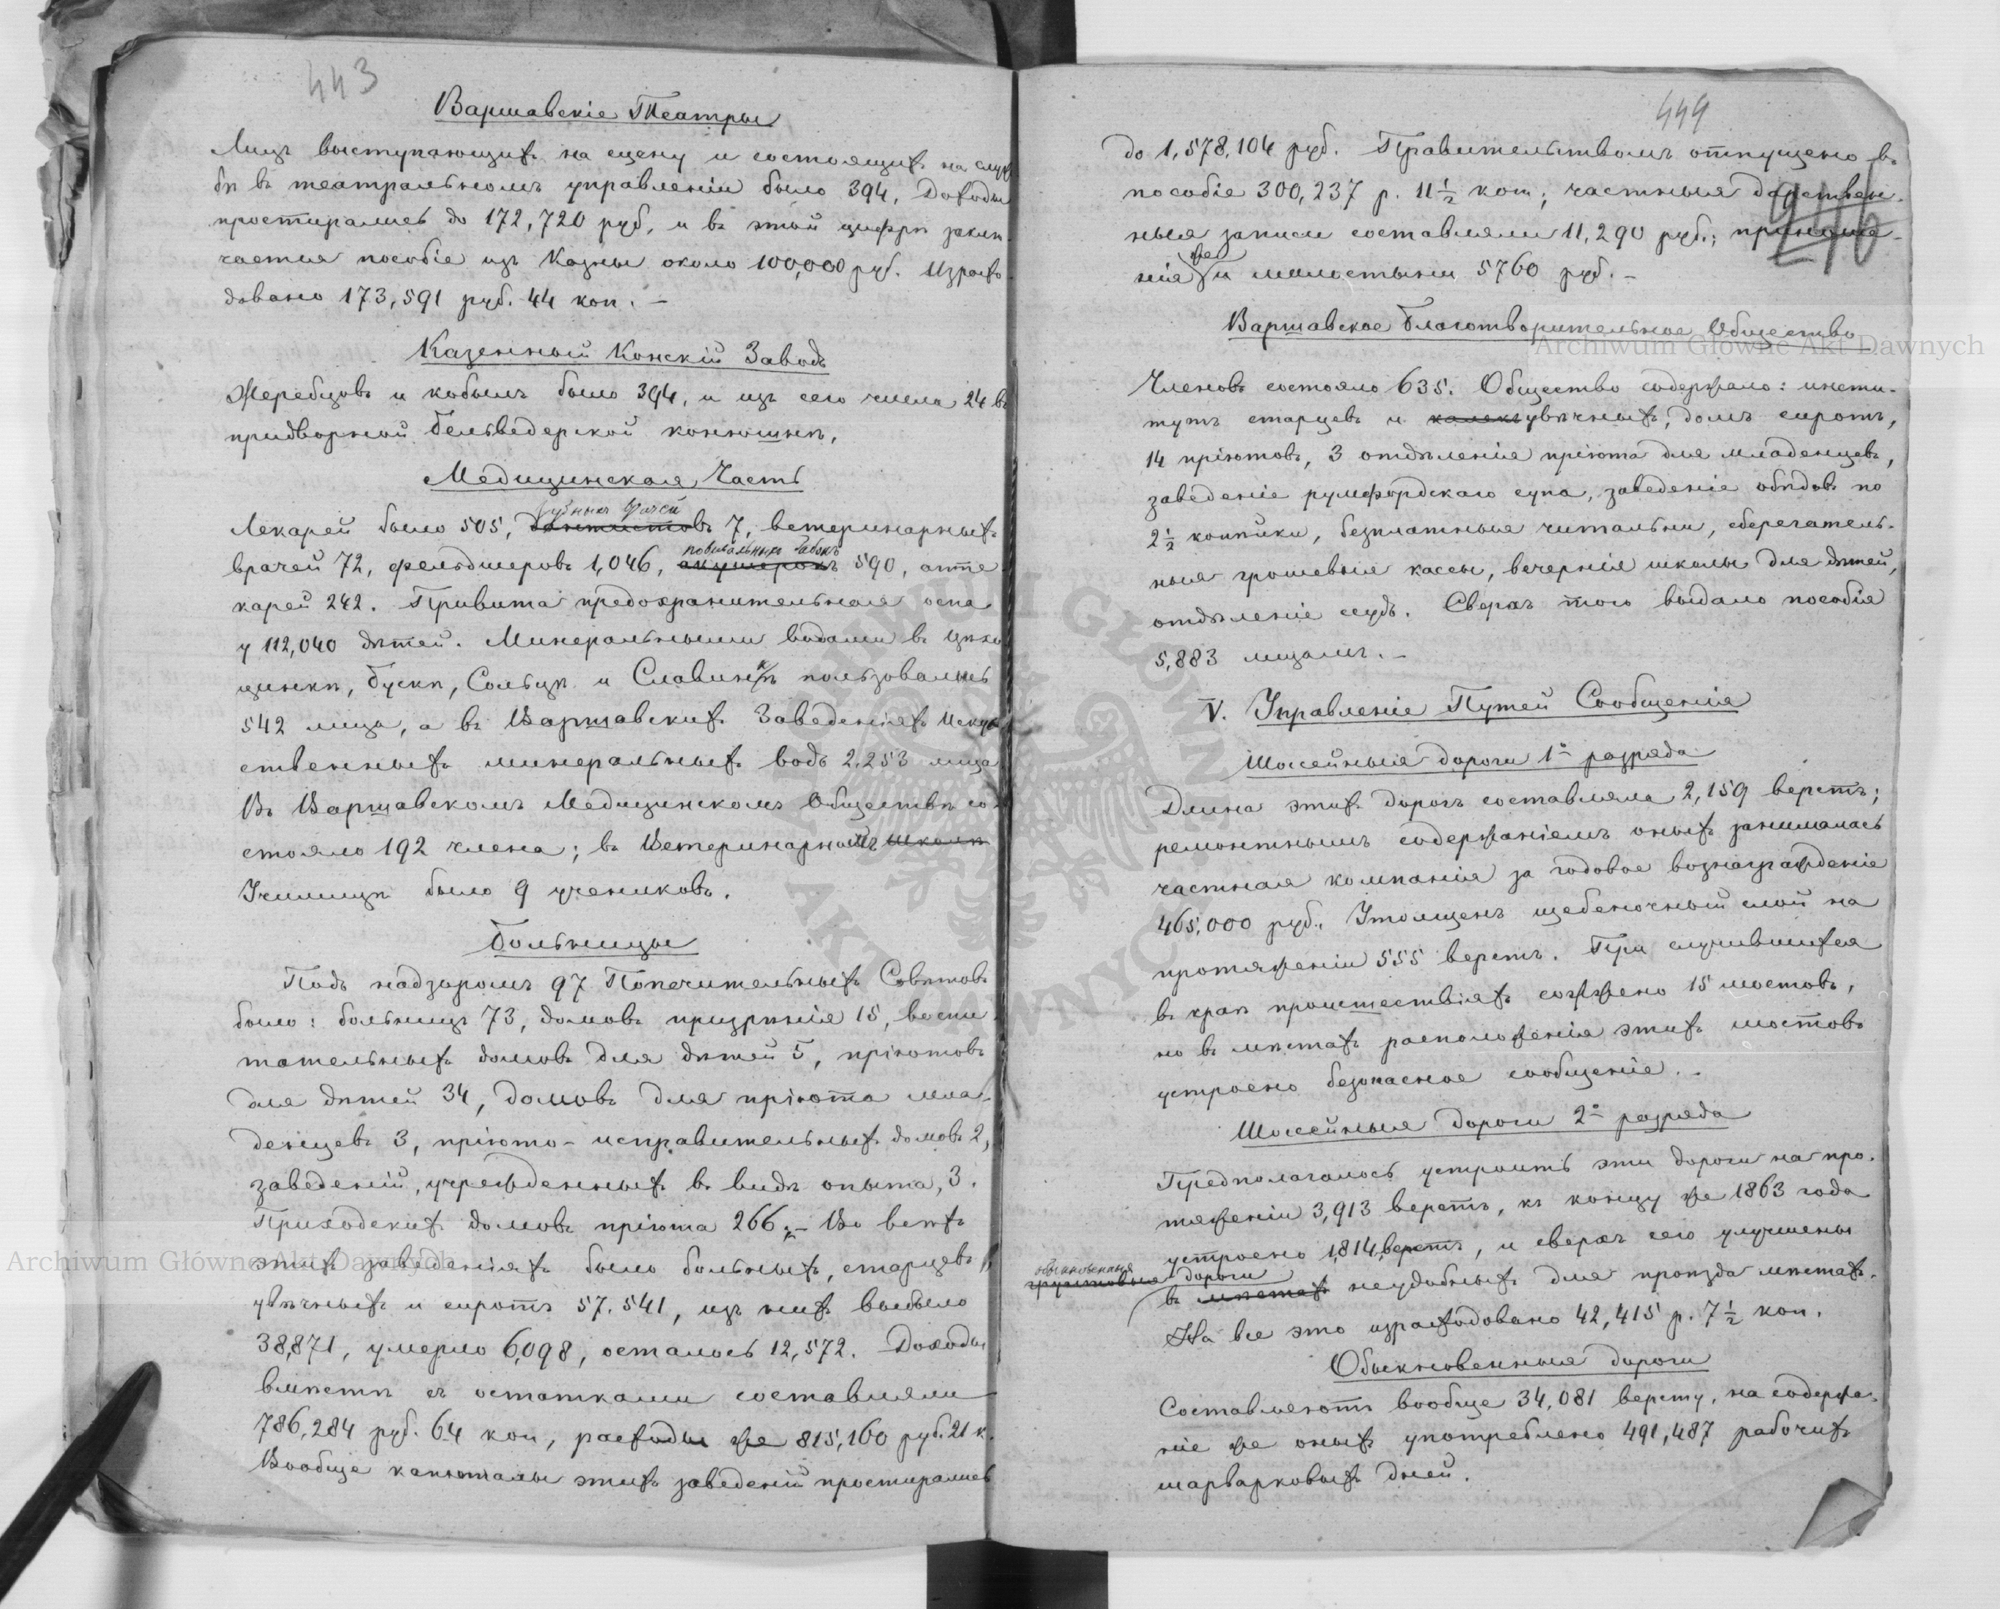 443
Варшавскіе Театры
Лицъ выступающихъ на сцену и состоящихъ на служ
бѣ въ театральномъ управленіи было 394, Доходы
простирались до 172,720 руб, и въ этой цифрѣ заклю-
чается пособіе изъ Казны около 100,000 руб. Израсхо-
довано 173,591 руб. 44 коп. –
Казенный Конскій Заводъ
Жеребцовъ и кобылъ было 394, и изъ сего числа 24 въ
придворной Бельведерской конюшнѣ,
Медицинская Часть
зубныхъ врачей
Лекарей было 505, дантистовъ 7, ветеринарныхъ
повивальныхъ бабокъ
врачей 72, фельдшеровъ 1,046, акушерокъ 590, апте
карей 242. Привита предохранительная оспа
у 112,040 дѣтей. Минеральными водами въ Цѣхо
цинкѣ, Бускѣ, Сольцѣ и Славинкѣ пользовались
542 лица, а въ Варшавскихъ Заведеніяхъ Искус
ственныхъ минеральныхъ водъ 2,253 лица
Въ Варшавскомъ Медицинскомъ Обществѣ со-
стояло 192 члена; въ Ветеринарномъ школѣ
Училищѣ было 9 учениковъ.
Больницы
Подъ надзоромъ 97 Попечительныхъ Совѣтовъ
было: больницъ 73, домовъ призрѣнія 15, воспи
тательныхъ домовъ для дѣтей 5, пріютовъ
для дѣтей 34, домовъ для пріюта мла-
денцевъ 3, пріюто-исправительныхъ домовъ 2,
заведеній, учрежденныхъ въ видѣ опыта, 3.
Приходскихъ домовъ пріюта 266. – Во всѣхъ
этихъ заведеніяхъ было больныхъ, старцевъ,
увѣчныхъ и сиротъ 57.541, изъ нихъ выбыло
38,871, умерло 6,098, осталось 12,572. Доходы
вмѣстѣ съ остатками составляли
786,284 руб. 64 коп, расходы же 815,160 руб. 21 к.
Вообще капиталы этихъ заведеній простирались
444
246
до 1,578,104 руб. Правительствомъ отпущено въ
пособіе 300,237 р. 11 1/2 коп; частныя дарствен-
ныя записи составляли 11,290 руб.; приноше-
же
нія и милостыни 5760 руб. –
Варшавское Благотворительное Общество
Членовъ состояло 635. Общество содержало: инсти-
тутъ старцевъ и калекъ увѣчныхъ, домъ сиротъ,
14 пріютовъ, 3 отдѣленія пріюта для младенцевъ,
заведеніе румфордскаго супа, заведеніе обѣдовъ по
2 1/2 копѣйки, безплатныя читальни, сберегатель-
ныя грошевыя кассы, вечернія школы для дѣтей,
отдѣленіе ссудъ. Сверхъ того выдало пособія
5,883 лицамъ. –
V. Управленіе Путей Сообщенія
Шоссейныя дороги 1го разряда
Длина этихъ дорогъ составляла 2,159 верстъ;
ремонтнымъ содержаніемъ оныхъ занималась
частная компанія за годовое вознагражденіе
465,000 руб., Утолщенъ щебеночный слой на
протяженіи 555 верстъ. При случившихся
въ краѣ происшествіяхъ сожжено 15 мостовъ,
но въ мѣстахъ расположенія этихъ мостовъ
устроено безопасное сообщеніе. –
Шоссейныя дороги 2го разряда
Предполагалось устроить эти дороги на про-
тяженіи 3,913 верстъ, къ концу же 1863 года
устроено 1,814 верстъ, и сверхъ сего улучшены
обыкновенныя
грунтовыя дороги
въ мѣстахъ неудобныхъ для проѣзда мѣстахъ.
На все это израсходовано 42,415 р. 7 1/2 коп.
Обыкновенныя дороги
Составляютъ вообще 34,081 версту, на содержа-
ніе же оныхъ употреблено 491,487 рабочихъ
шарварковыхъ дней.
Archiwum Główne Akt Dawnych
Archiwum Główne Akt Dawnych
ARCHIWUM GŁÓWNE AKT DAWNYCH